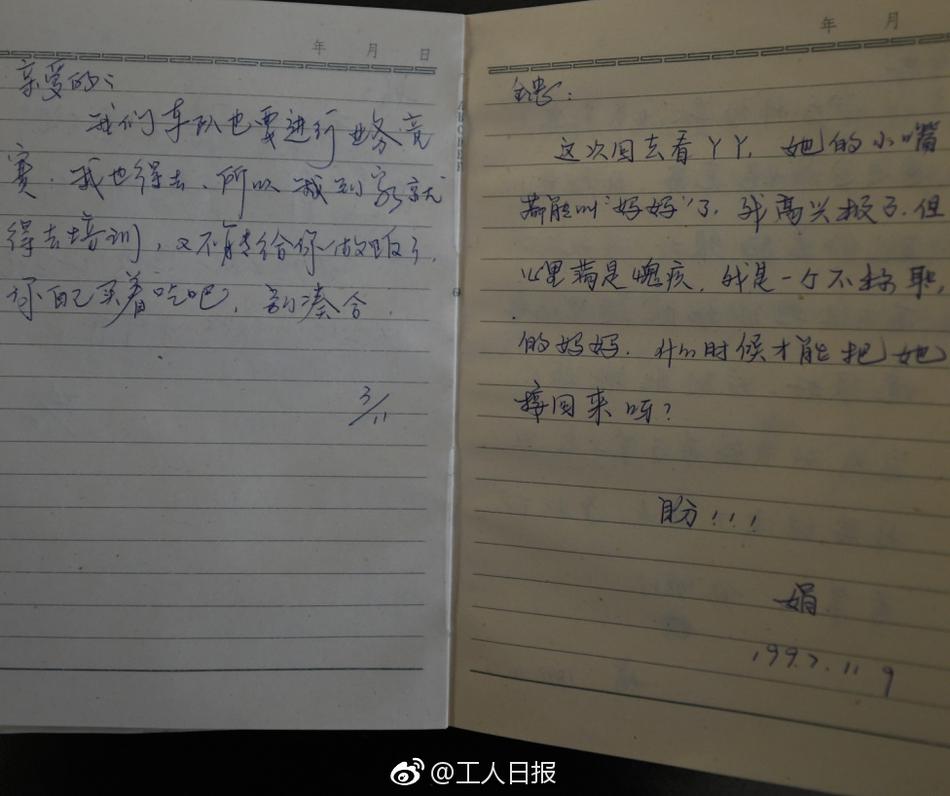 年 月 日
亲爱的:
我们车队也要进行业务竞
赛.我也得去、所以我到家就
得去培训,又不能给你做饭了,
你自己买着吃吧,别凑合.
3/11
年 月
这次回去看丫丫,她的小嘴
都能叫“妈妈”了,我高兴极了.但
心里满是愧疚,我是一个不称职,
的妈妈.什么时候才能把她
接回来呀?
盼!!!
娟
1997.11.9
@工人日报